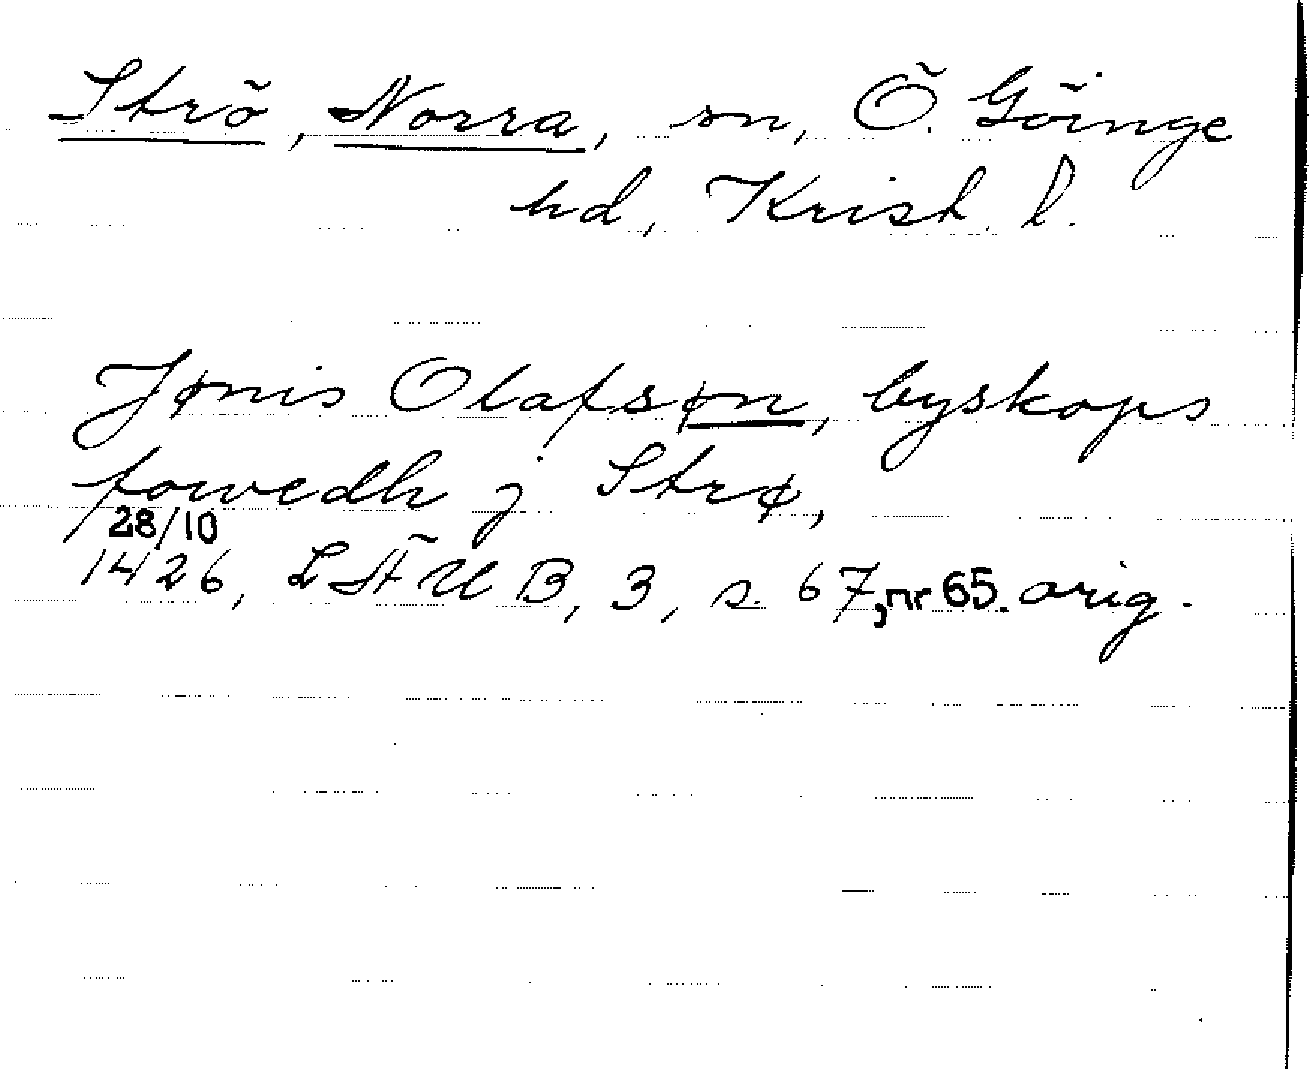 Strö, Norra, sn, Ö. Göinge
hd, Krist. l.
Jønis Olafsøn, byskops
fowedh j Strø,
28/10
1426, LÄUB, 3, s. 67, nr 65. orig.